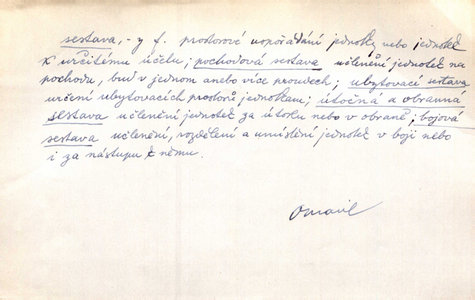 sestava, -y f. prostorové uspořádání jednotky nebo jednotek
k určitému účelu; pochodová sestava učlenění jednotek na
pochodu, buď v jednom anebo více proudech; ubytovací sestava
určení ubytovacích prostorů jednotkám; útočná a obranná
sestava učlenění jednotek za útoku nebo v obraně; bojová
sestava učlenění, rozdělení a umístění jednotek v boji nebo
i za nástupu k němu.